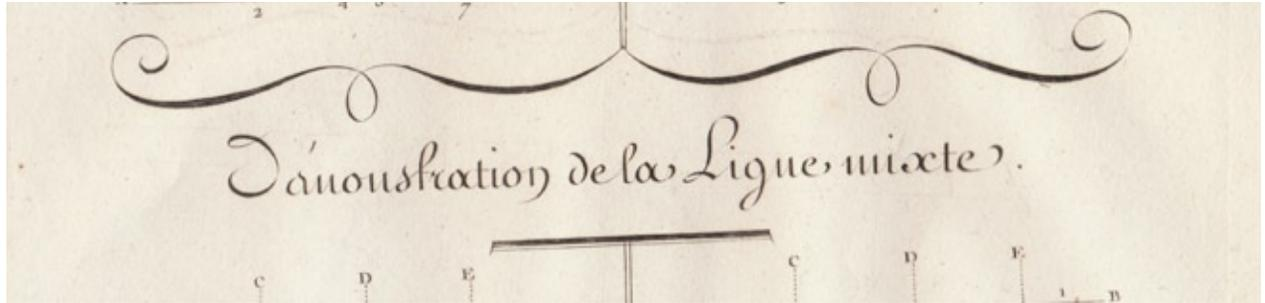 2 7
Démonstration de la Ligne mixte.
C D E C D E
1 B